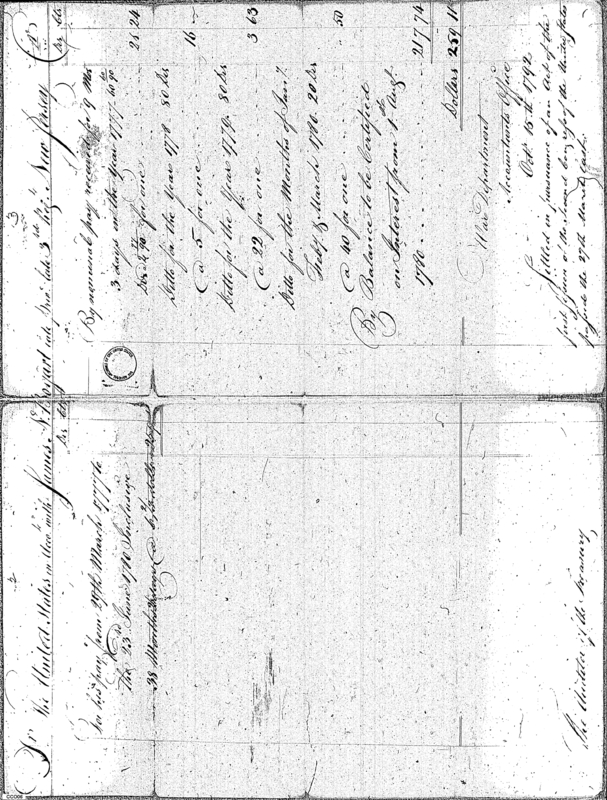 Dr The United States in Acct with James N. Bogart late Priv. late 3d Regt New Jersey Cr
Dr Cts
Drs Cts
For his pay from 29th March 1777 to
The 23 June 1780 Inclusive
38 Months
By nominal pay received for 9 Mos
3 days in the Year 1777
for one 26 24
Ditto for the Year 1778. 80 Drs
@ 5 for one 16
Ditto for the Year 1779. 80 Drs
@ 22 for one 3 63
Ditto for the Months of Jany
Feby & March 1780. 20 Drs
@ 40 for one 50
By Balance to be Certified
on Interest from 1st Augt
1780 217 74
Dollars 259 11
War Department
Accountants Office
Octr 15th 1792
Settled in pursuance of an Act of the
first Session of the Second Congress of the United States
passed the 27th March
The Auditor of the Treasury